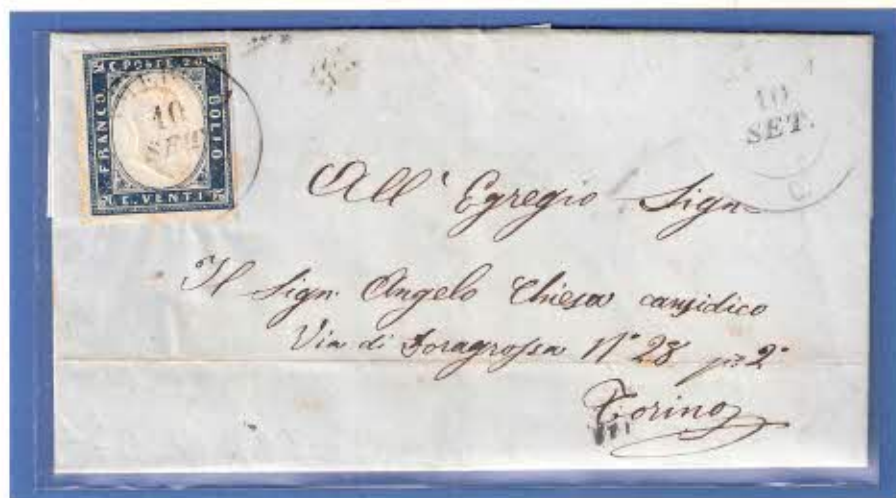 C. POSTE 20
FRANCO
BOLLO
C. VENTI
10
SET.
10
SET.
All' Egregio Sign=
Il Sign. Angelo Chiesa causidico
Via di Doragrossa N° 28 p= 2°
Torino